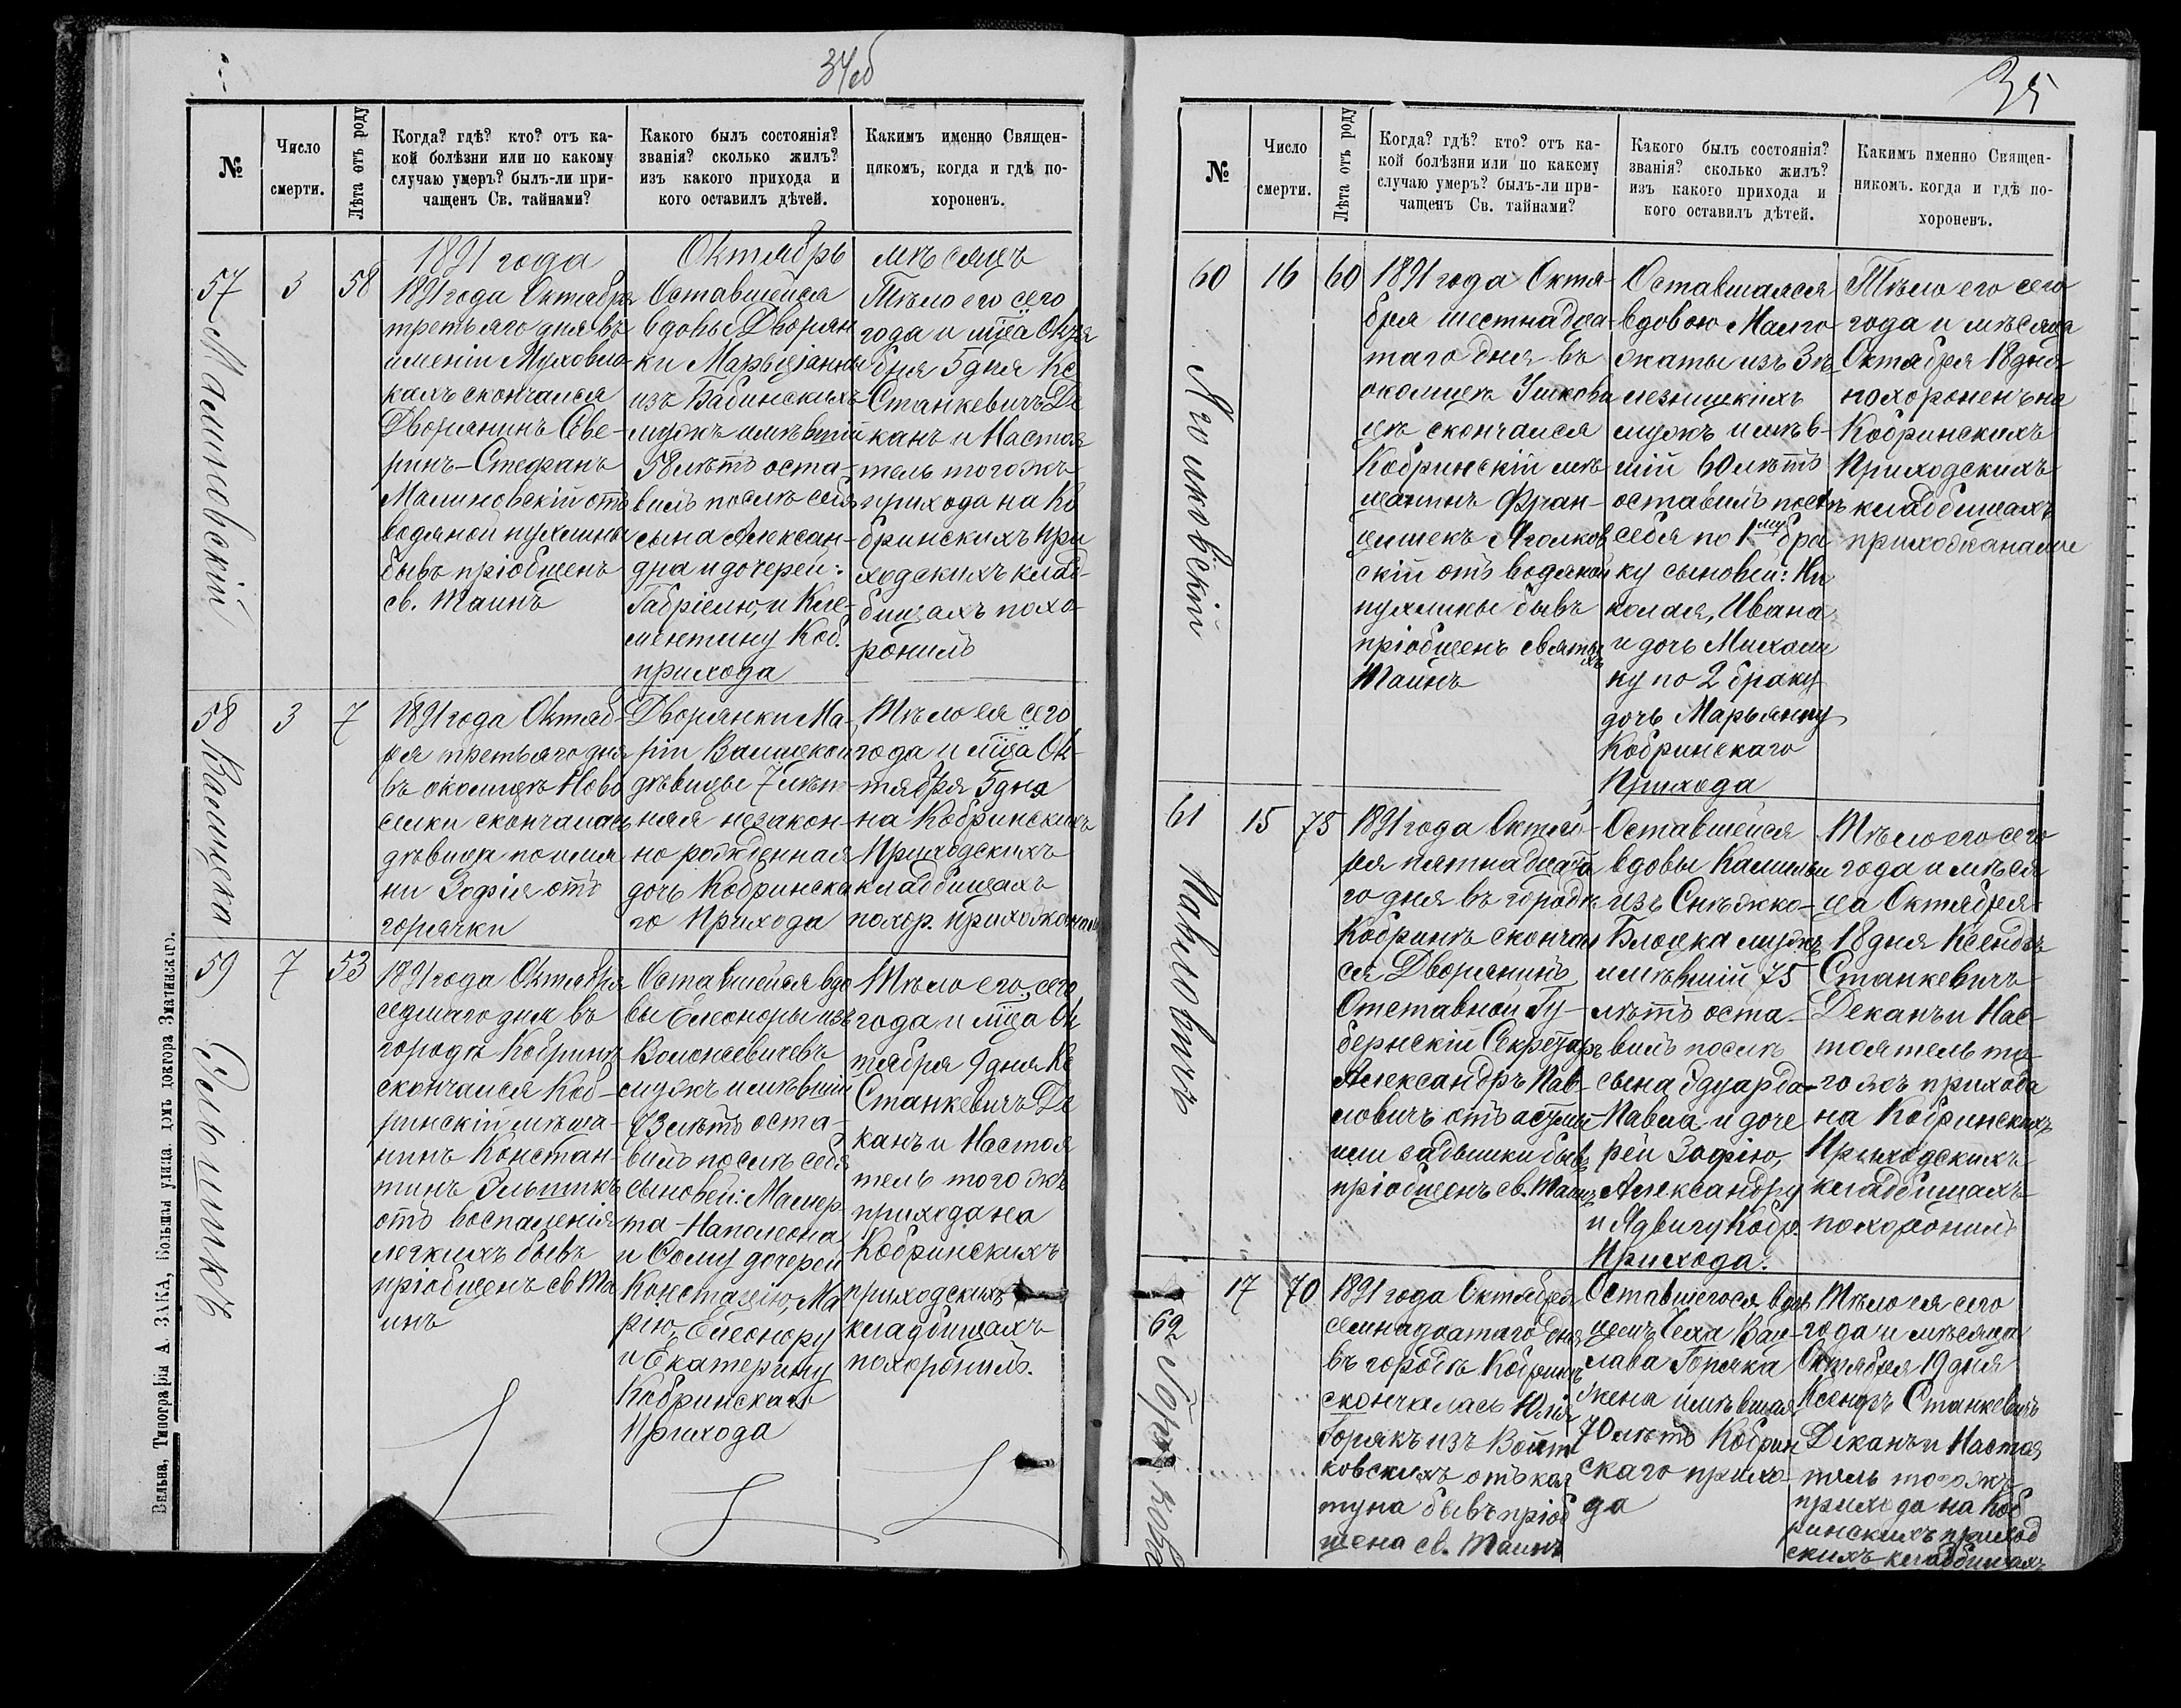 34об
№
Число
смерти.
Лѣта отъ роду
Когда? гдѣ? кто? отъ ка-
кой болѣзни или по какому
случаю умеръ? былъ-ли при-
чащенъ Св. тайнами?
Какого былъ состоянія?
званія? сколько жилъ?
изъ какого прихода и
кого оставилъ дѣтей.
Какимъ именно Священ-
никомъ, когда и гдѣ по-
хороненъ.
1891 года
Октябрь
мѣсяцъ
57
Малиновскій
3
58
1891 года Октября
третьяго дня въ
имѣніи Муховло-
кахъ скончался
Дворянинъ Севе-
ринъ-Стефанъ
Малиновскій отъ
водяной пухлины
бывъ пріобщенъ
св. Таинъ
Оставшейся
вдовы Дворян
ки Марціанны
изъ Бабинскихъ
мужъ имѣвшій
58 лѣтъ оста-
вилъ послѣ себя
сына Алексан-
дра и дочерей:
Габріелю, и Кле-
ментину Коб.
прихода
Тѣло его сего
года и мца Октя
бря 5 дня Кс
Станкевичъ Де
канъ и Настоя
тель тогожъ
прихода на Ко
бринскихъ при
ходскихъ клад-
бищахъ похо-
ронилъ
58
Валицка
3
7
1891 года Октяб-
ря третьяго дня
въ околицѣ Ново
селки скончалась
дѣвица по име
ни Зофія отъ
горячки
Дворянки Ма-
ріи Валицкой
дѣвицы 7 лѣт-
няя незакон-
но рожденная
дочь Кобринска
го Прихода
Тѣло ея сего
года и мца Ок-
тября 5 дня
на Кобринскихъ
Приходскихъ
кладбищахъ
похор. прихожанами
59
Ельпикъ
7
53
1891 года Октября
седмаго дня въ
городѣ Кобринѣ
скончался Коб-
ринскій мѣща-
нинъ Констан-
тинъ Ельпикъ
отъ воспаленія
легкихъ бывъ
пріобщенъ св Та
инъ
Оставшейся вдо
вы Елеоноры изъ
Волонсевичевъ
мужъ имѣвшій
73 лѣтъ оста-
вилъ послѣ себя
сыновей:
та-Наполеона
и Фому дочерей
Констацію, Ма
рію, Елеонору
и Екатерину
Кобринскаго
Прихода
Тѣло его, сего
года и мца Ок
тября 9 дня Кс
Станкевичъ Де
канъ и Настоя
тель того жъ
прихода на
Кобринскихъ
приходскихъ
кладбищахъ
похоронилъ.
Вильна, Типографія А. ЗАКА, Большая улица, домъ доктора Зматинскаго.
35
№
Число
смерти.
Лѣта отъ роду
Когда? гдѣ? кто? отъ ка-
кой болѣзни или по какому
случаю умеръ? былъ-ли при-
чащенъ Св. тайнами?
Какого былъ состоянія?
званія? сколько жилъ?
изъ какого прихода и
кого оставилъ дѣтей.
Какимъ именно Священ-
никомъ. когда и гдѣ по-
хороненъ.
60
Яголковскій
16
60
1891 года Октя-
бря шестнадца-
таго дня въ
околицѣ Ушкови
цѣ скончался
Кобринскій мѣ
щанинъ Фран-
цишекъ Яголков
скій отъ водяной
пухлины бывъ
пріобщенъ святыхъ
Таинъ
Оставшаяся
вдовою Малго
жаты изъ Зѣ
лезницкихъ
мужъ имѣв-
шій 60 лѣтъ
оставилъ послѣ
себя по 1му бра
ку сыновей: Ни
колая, Ивана
и дочь Михали
ну по 2 браку
дочь Марьянну
Кобринскаго
Прихода
Тѣло его сего
года и мѣсяца
Октября 18 дня
похороненъ на
Кобринскихъ
Приходскихъ
кладбищахъ
прихожанами
61
Павловичъ
15
75
1891 года Октяб-
ря пятнадцата
го дня въ городѣ
Кобринѣ скончал
ся Дворянинъ
Отставной Гу-
бернскій Секретарь
Александръ Пав-
ловичъ отъ астмы
или задышки бывъ
пріобщенъ св. Таинъ
Оставшейся
вдовы Камилли
изъ Снѣжко-
Блоцка мужъ
имѣвшій 75
лѣтъ оста-
вилъ послѣ
сына Эдуарда-
Павла и доче
рей Зофію,
Александру
и Ядвигу Кобр.
Прихода.
Тѣло его сего
года и мѣся
ца Октября
18 дня Ксендзъ
Станкевичъ
Деканъ и Нас-
тоятель то
го жъ прихода
на Кобринскихъ
Приходскихъ
кладбищахъ
похоронилъ
62
17
70
1891 года Октября
семнадцатаго дня
въ городѣ Кобринѣ
скончалась Юлія
Горякъ изъ Войт
ковскихъ отъ кал
туна бывъ пріоб
щена св. Таинъ
Оставшегося вдов
цемъ Чеха Вац-
лава Горяка
жена имѣвшая
70 лѣтъ Кобрин
скаго прихо-
да
Тѣло ея сего
года и мѣсяца
Октября 19 дня
Ксендзъ Станкевичъ
Деканъ и Настоя
тель тогожъ
прихода на Коб
ринскихъ приход
скихъ кладбищахъ